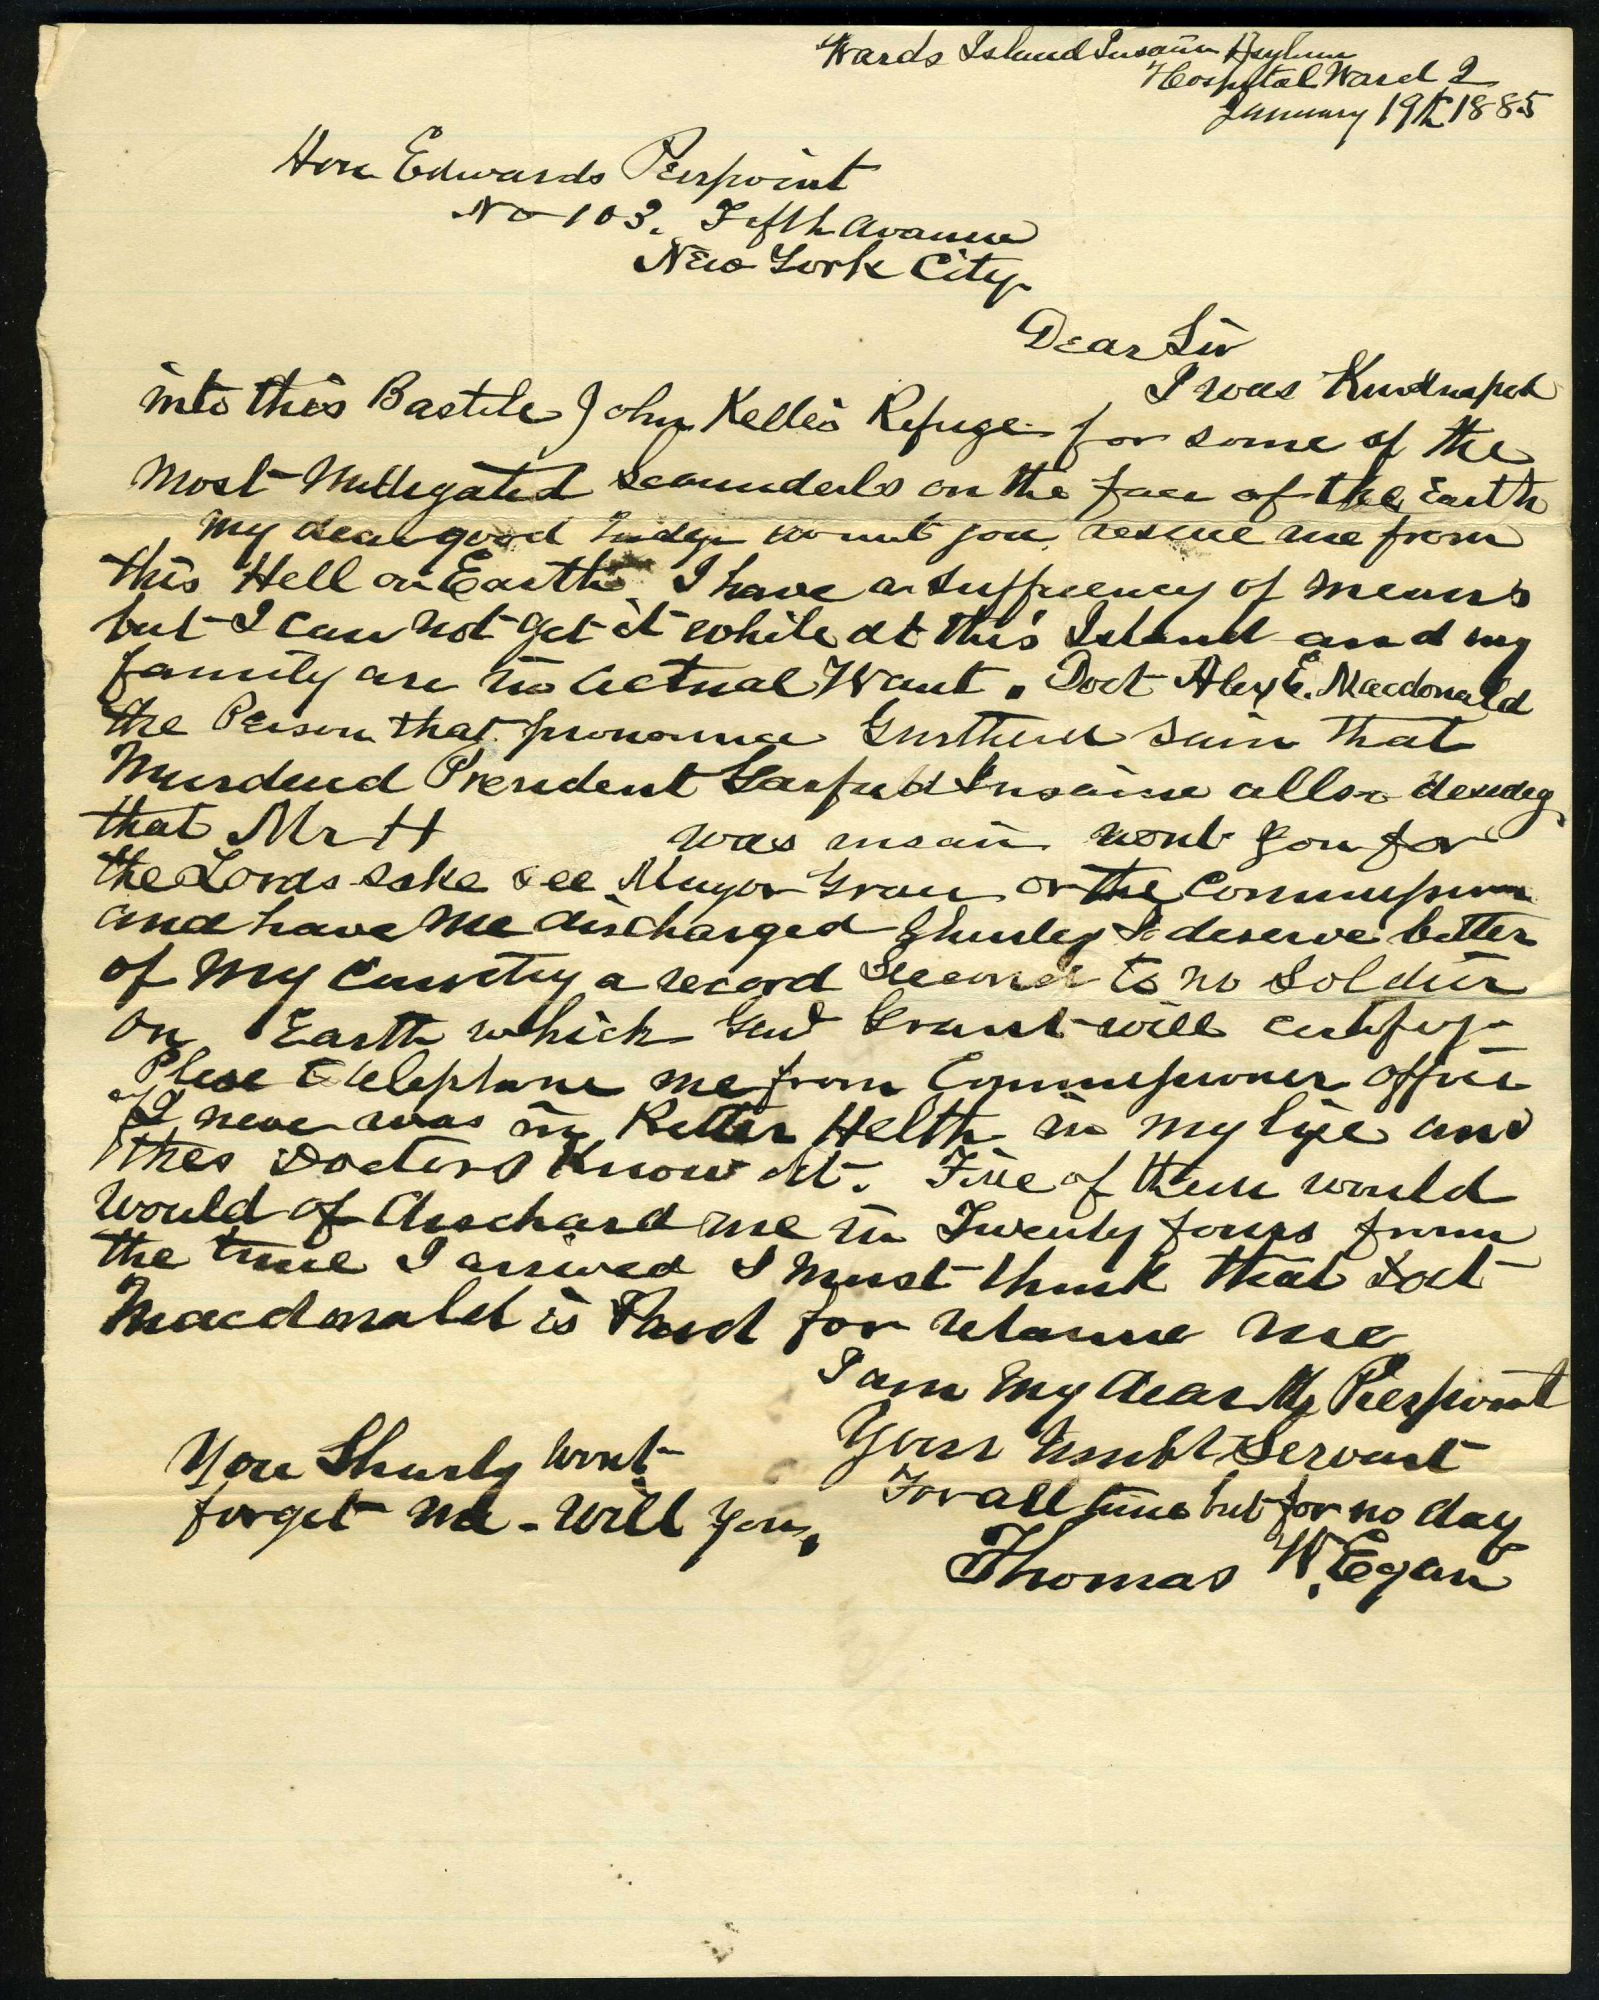 Wards Island Insain Asylum
Hospital Ward 2
January 19th 1885
Hon Edwards Pierpoint
No 103. Fifth Avanue
New York City.
Dear Sir
I was Kindnaped
into this Bastile John Kelleis Refuge for some of the
most Mittegated scounderls on the face of the Earth
My dear good Judge wount you rescue me from
this Hell on Earth I have a suffucency of means
but I can not get it while at this Island and my
family are in actual Want. Doct Alex E. Macdonald
the Person that pronounce that
Murdered President Garfield Insaine allso
that Mr H was insain wont you for
the Lords sake see Mayor Grace or the Commissioner
and have me discharged Shurley I deserve better
of My Cuntry a record Second to no Soldier
on Earth which Genl Grant will certify.
Plese telephone me from Commissioner office
I never was in Better Helth in my life and
thes Doctors Know it. Five of them would
would of dischard me in Twenty fours from
the time I arrived I must think that Doct
Macdonald is Paid for retaine me
I am My dear Mr Pierpoint
Your Humbl Servant
For all time but for no day
Thomas W. Egan
You Shurly wont
forget me - will you.